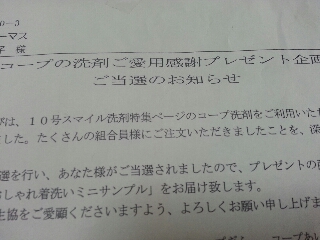 ーマス
様
コープの洗剤ご愛用感謝プレゼント企画
ご当選のお知らせ
は、１０号スマイル洗剤特集ページのコープ洗剤をご利用いた
ました。たくさんの組合員様にご注文いただきましたことを、深
選を行い、あなた様がご当選されましたので、プレゼントの
おしゃれ着洗いミニサンプル」をお届け致します。
生協をご愛顧くださいますよう、よろしくお願い申し上げま
コープあい